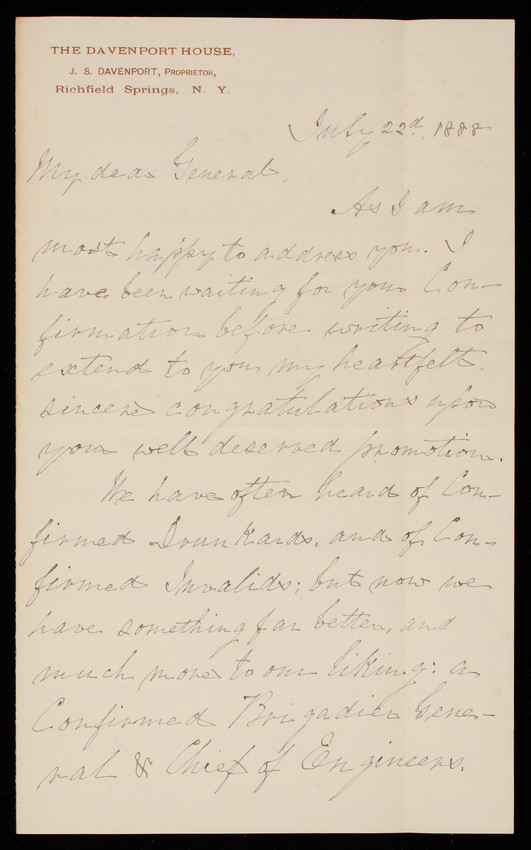 THE DAVENPORT HOUSE,
J. S. DAVENPORT, PROPRIETOR,
Richfield Springs, N. Y.
July 22d, 1888
My dear General,
As I am
most happy to address you. I
have been waiting for your Con-
firmation before writing to
extend to you my heartfelt,
sincere congratulations upon
your well deserved promotion.
We have often heard of Con-
firmed Drunkards, and of Con-
firmed Invalids; but now we
have something far better, and
much more to our liking: a
Confirmed Brigadier Gene-
ral & Chief of Engineers.